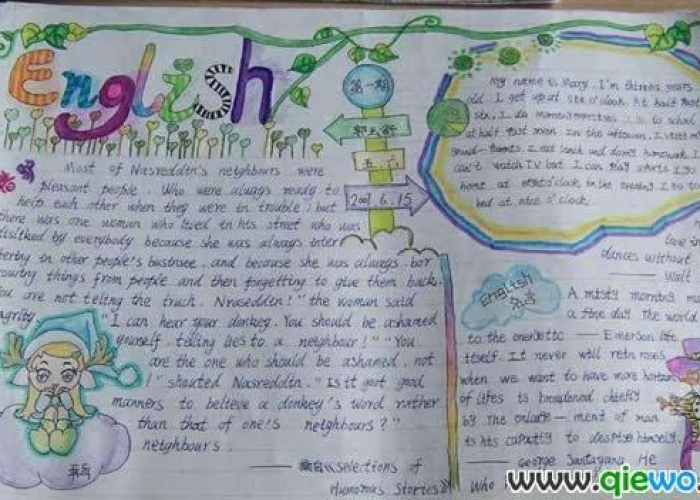 English
第一期
五六
2007.6.15
Most of Nasreddin's neighbours were
pleasant people. Who were always ready to
help each other when they were in trouble; but
there was one woman who lived in his street who was
disliked by everybody because she was always inter
fering in other people's business, and because she was always bor
rowing things from people and then forgetting to give them back.
You are not telling the truch, Nraseddin!" the woman said
angrily
"I can hear your donkey. You should be ashamed
yourself, telling lies to a neighbour!" "You
are the one who should be ashamed, not
I" shouted Nasreddin. "Is it goot good
manners to believe a donkey's word rather
than that of one's neighbours?"
neighbours
selections of
Humorous Stories
My name is I'm thirteen years
old. I get up at six o'clock. At half
six, I do morning exercises. I go to school
at half past seven. In the afternoon,
I eat lunch and don't homework. I
can't watch TV but I can play sports. I go
home at eight o'clock. In the evening I go to
bed at nine o'clock.
Love
dances without
Walt
English
名言
A misty morning
a fine day the world
to the energetic — Emerson life
itself. It never will retn roses
when we want to have more
of lifes is broadened chiefly
by the ment of man
is his capacity to despise himself.
— George Santayana He
Who
www.qiewo